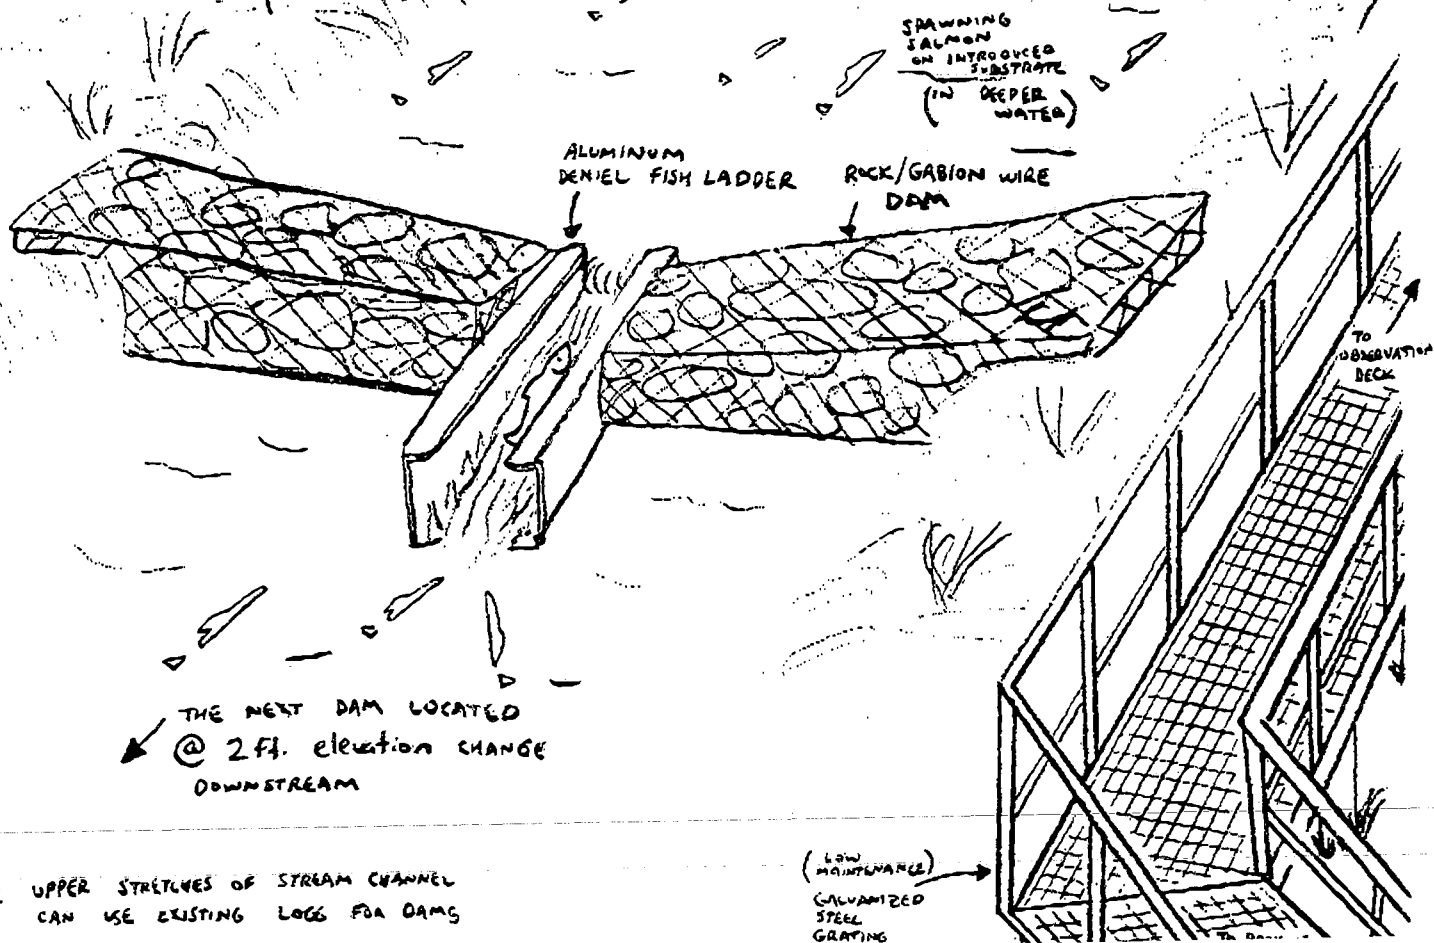 SPAWNING
SALMON
ON INTRODUCED
SUBSTRATE
(IN DEEPER
WATER)
ALUMINUM
DENIEL FISH LADDER
ROCK/GABION WIRE
DAM
TO
OBSERVATION
DECK
THE NEXT DAM LOCATED
@ 2 ft. elevation CHANGE
DOWNSTREAM
UPPER STRETCHES OF STREAM CHANNEL
CAN USE EXISTING LOGS FOR DAMS
(LOW
MAINTENANCE)
GALVANIZED
STEEL
GRATING
TO